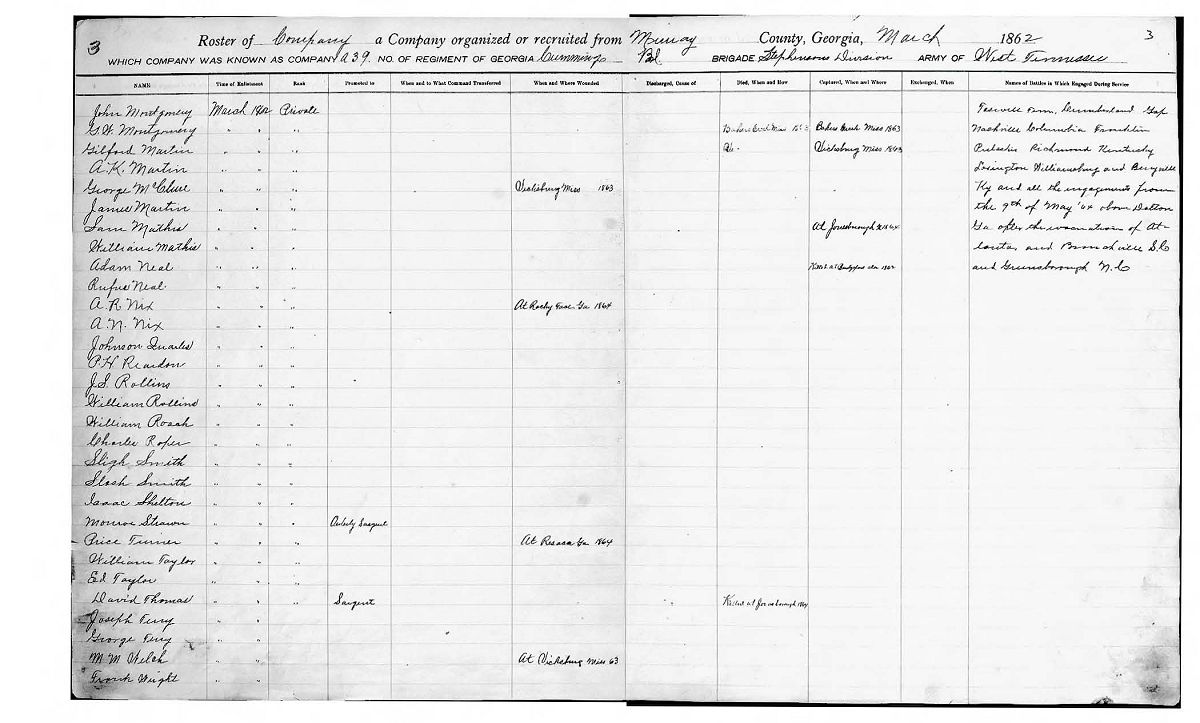 3 Roster of Company a Company organized or recruited from Murray County, Georgia, March 1862 3
WHICH COMPANY WAS KNOWN AS COMPANY A 39. NO. OF REGIMENT OF GEORGIA Cummings Bd. BRIGADE Stephensons Division ARMY OF West Tennessee
NAME Time of Enlistment Rank Promoted to When and to What Command Transferred When and Where Wounded Discharged, Cause of Died, When and How Captured, When and Where Exchanged, When Names of Battles in Which Engaged During Service
John Montgomery March 1862 Private Cumberland Gap
G.W. Montgomery " " " Bakers Creek Miss Bakers Creek Miss 1863 Nashville Columbia Franklin
Gilford Martin " " " Vicksburg Miss 1863 Pulaski Richmond Kentucky
A.K. Martin " " " Lexington Williamsburg and
George McClure " " " Vicksburg Miss 1863 Ky and all the engagements from
James Martin " " " the 9th of May '64 above Dalton
Sam Mathis " " " At Jonesborough Ga 1864 Ga after the evacuation of At-
William Mathis " " " lanta, and Branchville S.C
Adam Neal " " " 1862 and Greensborough N.C
Rufus Neal " " "
A.R. Nix " " " At Rocky Face Ga 1864
A.N. Nix " " "
Johnson Quarles " " "
P.H. Reardon " " "
J.S. Rollins " " "
William Rollins " " "
William Roach " " "
Charlie Roper " " "
Sligh Smith " " "
Smith " " "
Isaac Shelton " " "
Monroe Strawn " " " Orderly Sargent
Price Turner " " " At Resaca Ga 1864
William Taylor " " "
Ed Taylor " " "
David Thomas " " " Sargent Killed at Jonesborough 1864
Joseph Terry " "
George Terry " "
M M Welch " " At Vicksburg Miss 63
Frank Wright " "